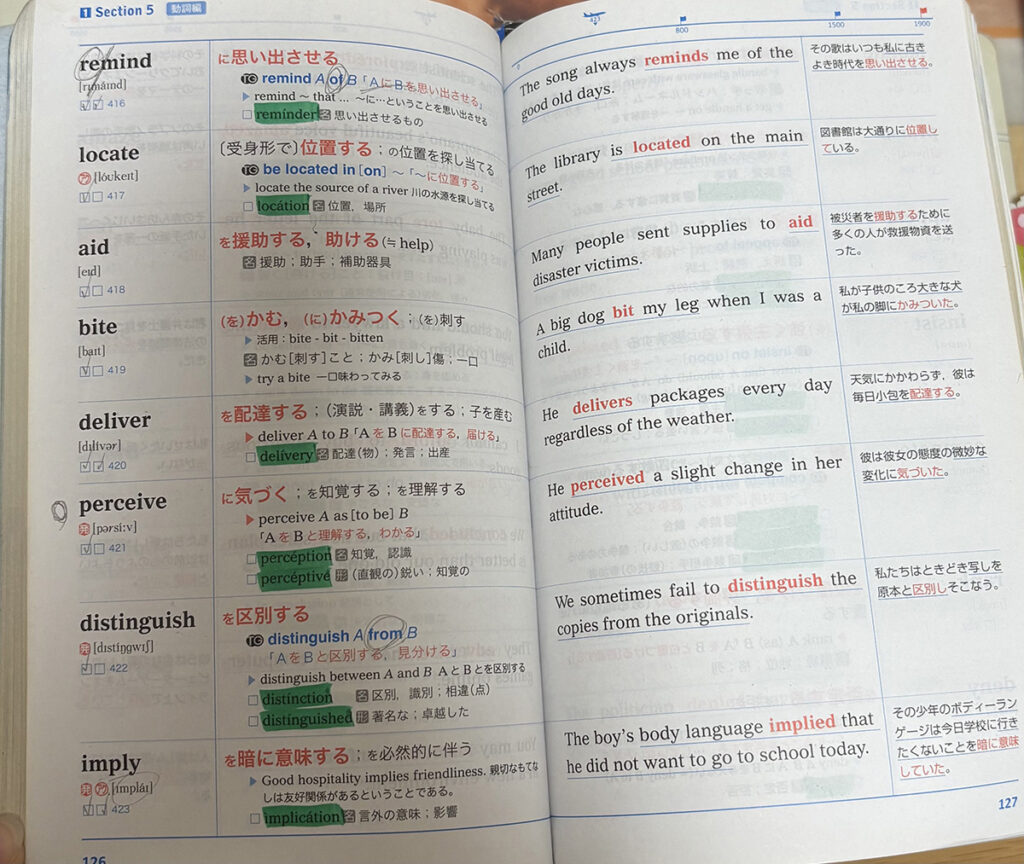 1 Section 5 動詞編
remind
[rɪmáɪnd]
416
に思い出させる
TG remind A of B「AにBを思い出させる」
▶ remind ~ that ... ~に…ということを思い出させる
□ remínder 名 思い出させるもの
locate
ア [lóʊkeɪt]
417
〔受身形で〕位置する；の位置を探し当てる
TG be located in [on] ~「~に位置する」
▶ locate the source of a river 川の水源を探し当てる
□ locátion 名 位置，場所
aid
[eɪd]
418
を援助する，助ける(≒ help)
名 援助；助手；補助器具
bite
[baɪt]
419
(を)かむ，(に)かみつく；(を)刺す
▶ 活用：bite - bit - bitten
名 かむ[刺す]こと；かみ[刺し]傷；一口
▶ try a bite 一口味わってみる
deliver
[dɪlívər]
420
を配達する；(演説・講義)をする；子を産む
▶ deliver A to B「AをBに配達する，届ける」
□ delívery 名 配達(物)；発言；出産
perceive
発 [pərsíːv]
421
に気づく；を知覚する；を理解する
▶ perceive A as [to be] B
「AをBと理解する，わかる」
□ percéption 名 知覚，認識
□ percéptive 形 (直観の)鋭い；知覚の
distinguish
発 [dɪstíŋgwɪʃ]
422
を区別する
TG distinguish A from B
「AをBと区別する，見分ける」
▶ distinguish between A and B AとBとを区別する
□ distínction 名 区別，識別；相違(点)
□ distínguished 形 著名な；卓越した
imply
発 ア [ɪmpláɪ]
423
を暗に意味する；を必然的に伴う
▶ Good hospitality implies friendliness. 親切なもてな
しは友好関係があるということである。
□ implicátion 名 言外の意味；影響
126
0
423
800
1500
1900
The song always reminds me of the
good old days.
その歌はいつも私に古き
よき時代を思い出させる。
The library is located on the main
street.
図書館は大通りに位置し
ている。
Many people sent supplies to aid
disaster victims.
被災者を援助するために
多くの人が救援物資を送
った。
A big dog bit my leg when I was a
child.
私が子供のころ大きな犬
が私の脚にかみついた。
He delivers packages every day
regardless of the weather.
天気にかかわらず，彼は
毎日小包を配達する。
He perceived a slight change in her
attitude.
彼は彼女の態度の微妙な
変化に気づいた。
We sometimes fail to distinguish the
copies from the originals.
私たちはときどき写しを
原本と区別しそこなう。
The boy's body language implied that
he did not want to go to school today.
その少年のボディーラン
ゲージは今日学校に行き
たくないことを暗に意味
していた。
127